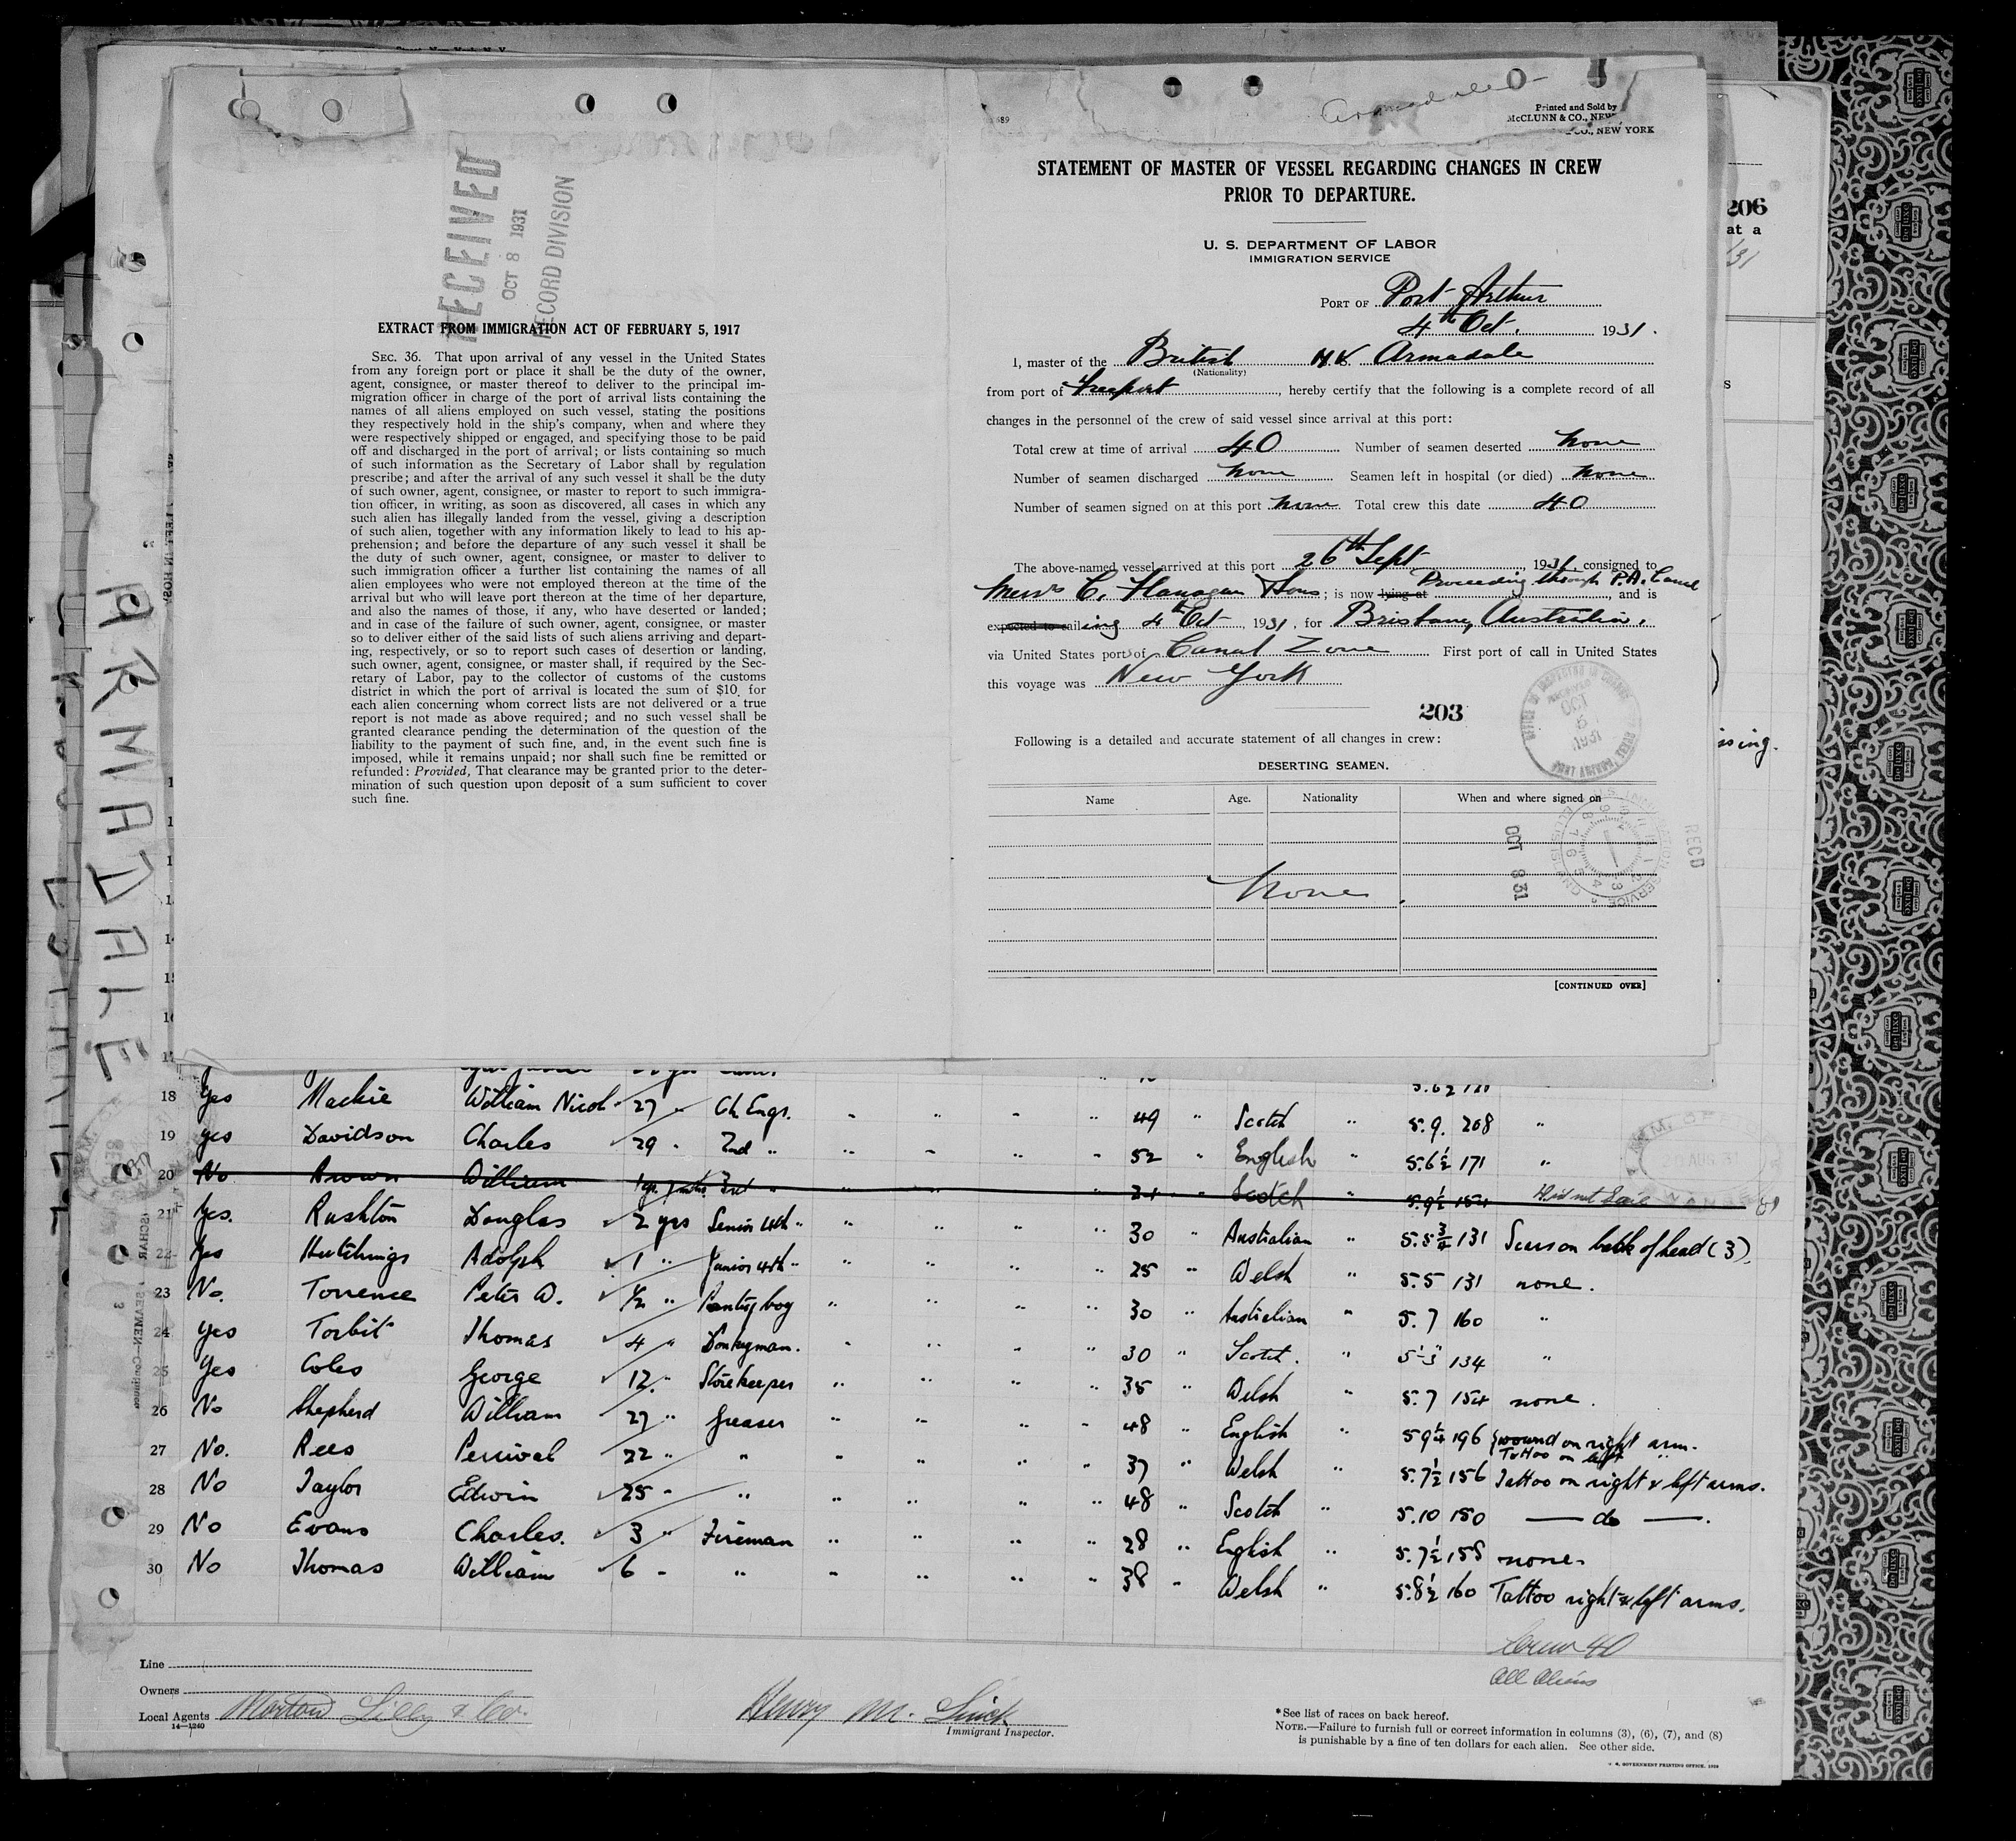 RECEIVED
OCT 8 1931
RECORD DIVISION
EXTRACT FROM IMMIGRATION ACT OF FEBRUARY 5, 1917
SEC. 36. That upon arrival of any vessel in the United States
from any foreign port or place it shall be the duty of the owner,
agent, consignee, or master thereof to deliver to the principal im-
migration officer in charge of the port of arrival lists containing the
names of all aliens employed on such vessel, stating the positions
they respectively hold in the ship's company, when and where they
were respectively shipped or engaged, and specifying those to be paid
off and discharged in the port of arrival; or lists containing so much
of such information as the Secretary of Labor shall by regulation
prescribe; and after the arrival of any such vessel it shall be the duty
of such owner, agent, consignee, or master to report to such immigra-
tion officer, in writing, as soon as discovered, all cases in which any
such alien has illegally landed from the vessel, giving a description
of such alien, together with any information likely to lead to his ap-
prehension; and before the departure of any such vessel it shall be
the duty of such owner, agent, consignee, or master to deliver to
such immigration officer a further list containing the names of all
alien employees who were not employed thereon at the time of the
arrival but who will leave port thereon at the time of her departure,
and also the names of those, if any, who have deserted or landed;
and in case of the failure of such owner, agent, consignee, or master
so to deliver either of the said lists of such aliens arriving and depart-
ing, respectively, or so to report such cases of desertion or landing,
such owner, agent, consignee, or master shall, if required by the Sec-
retary of Labor, pay to the collector of customs of the customs
district in which the port of arrival is located the sum of $10 for
each alien concerning whom correct lists are not delivered or a true
report is not made as above required; and no such vessel shall be
granted clearance pending the determination of the question of the
liability to the payment of such fine, and, in the event such fine is
imposed, while it remains unpaid; nor shall such fine be remitted or
refunded: Provided, That clearance may be granted prior to the deter-
mination of such question upon deposit of a sum sufficient to cover
such fine.
ARMADALE
Armadale
Printed and Sold by
McCLUNN & CO., NEW
CO., NEW YORK
STATEMENT OF MASTER OF VESSEL REGARDING CHANGES IN CREW
PRIOR TO DEPARTURE.
U. S. DEPARTMENT OF LABOR
IMMIGRATION SERVICE
PORT OF Port Arthur
4th Oct. 1931.
I, master of the British M.V. Armadale
(Nationality)
from port of Freeport, hereby certify that the following is a complete record of all
changes in the personnel of the crew of said vessel since arrival at this port:
Total crew at time of arrival 40 Number of seamen deserted none
Number of seamen discharged none Seamen left in hospital (or died) none
Number of seamen signed on at this port none Total crew this date 40
The above-named vessel arrived at this port 26th Sept, 1931, consigned to
Messrs C. Flanagan & Sons; is now lying at Proceeding through P.A. Canal, and is
expected to sailing 4th Oct, 1931, for Brisbane, Australia,
via United States ports of Canal Zone First port of call in United States
this voyage was New York
203
Following is a detailed and accurate statement of all changes in crew:
DESERTING SEAMEN.
Name Age. Nationality When and where signed on
None.
[CONTINUED OVER]
OCT 8 31
RECD
206
at a
18 Yes Mackie William Nicol 27 " Ch Engr. " " " " 49 " Scotch " 5.9. 208 "
19 Yes Davidson Charles 29 " 2nd " " " " " 52 " English " 5.6½ 171 "
20 No Brown William 1 yr. 7 mths. 3rd " " " " Scotch " 5.9½ 154 Did not Sail
21 Yes. Rushton Douglas 2 yrs Senior 4th " " " " " 30 " Australian " 5.5¾ 131 Scars on back of head (3).
22 Yes Hutchings Adolph 1 " Junior 4th " " " " " 25 " Welsh " 5.5 131 none.
23 No. Torrence Peter A. ½ " Pantry boy " " " " 30 " Australian " 5.7 160 "
24 Yes Torbit Thomas 4 " Donkeyman. " " " " 30 " Scotch. " 5-3 134 "
25 Yes Coles George 12. " Storekeeper " " " " 35 " Welsh " 5.7 154 none.
26 No Shepherd William 27 " Greaser " " " " 48 " English " 5 9¼ 196 wound on right arm.
Tattoo on left "
27 No. Rees Percival 22 " " " " " " 37 " Welsh " 5.7½ 156 Tattoo on right & left arms.
28 No Taylor Edwin 25 " " " " " " 48 " Scotch " 5.10 150 — do —.
29 No Evans Charles. 3 " Fireman " " " " 28 " English " 5.7½ 158 none.
30 No Thomas William 6 " " " " " " 38 " Welsh " 5.8½ 160 Tattoo right & left arms.
Crew 40
All Aliens
Line
Owners
Local Agents Norton Lilly & Co.
14—1240
Henry M.
Immigrant Inspector.
*See list of races on back hereof.
NOTE.—Failure to furnish full or correct information in columns (3), (6), (7), and (8)
is punishable by a fine of ten dollars for each alien. See other side.